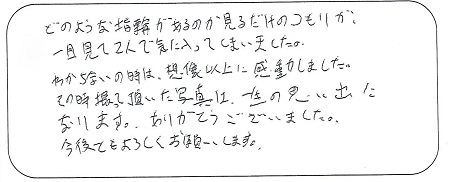 どのような指輪があるのか見るだけのつもりが、
一目見て2人で気に入ってしまいました。
わからないの時は、想像以上に感動しました。
その時撮って頂いた写真は、一生の思い出に
なります。ありがとうございました。
今後ともよろしくお願いします。